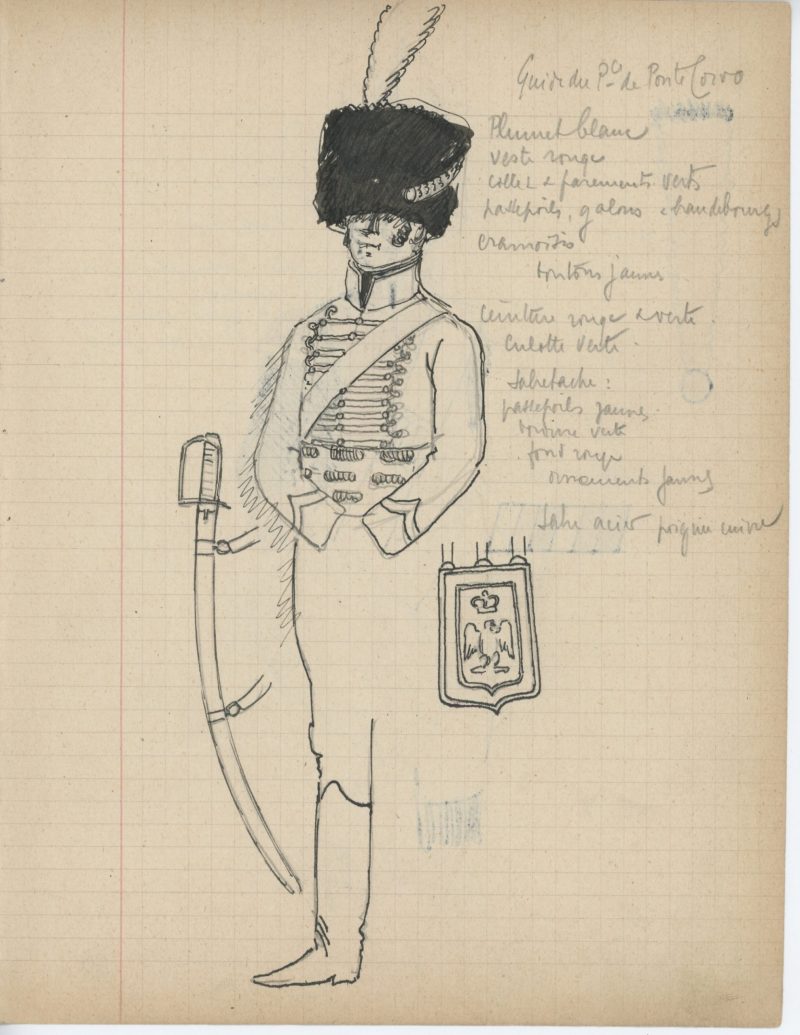 Guide du P.ce de Ponte Corvo
Plumet blanc
veste rouge
collet & parements verts
passepoils, galons & brandebourgs
cramoisis
boutons jaunes
ceinture rouge & verte.
culotte verte.
Sabretache:
passepoils jaunes.
bordure verte
fond rouge
ornements jaunes
Sabre acier poignée cuivre